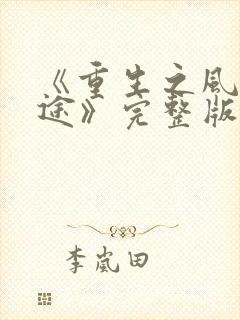 《重生之风
途》完整版
李岚田